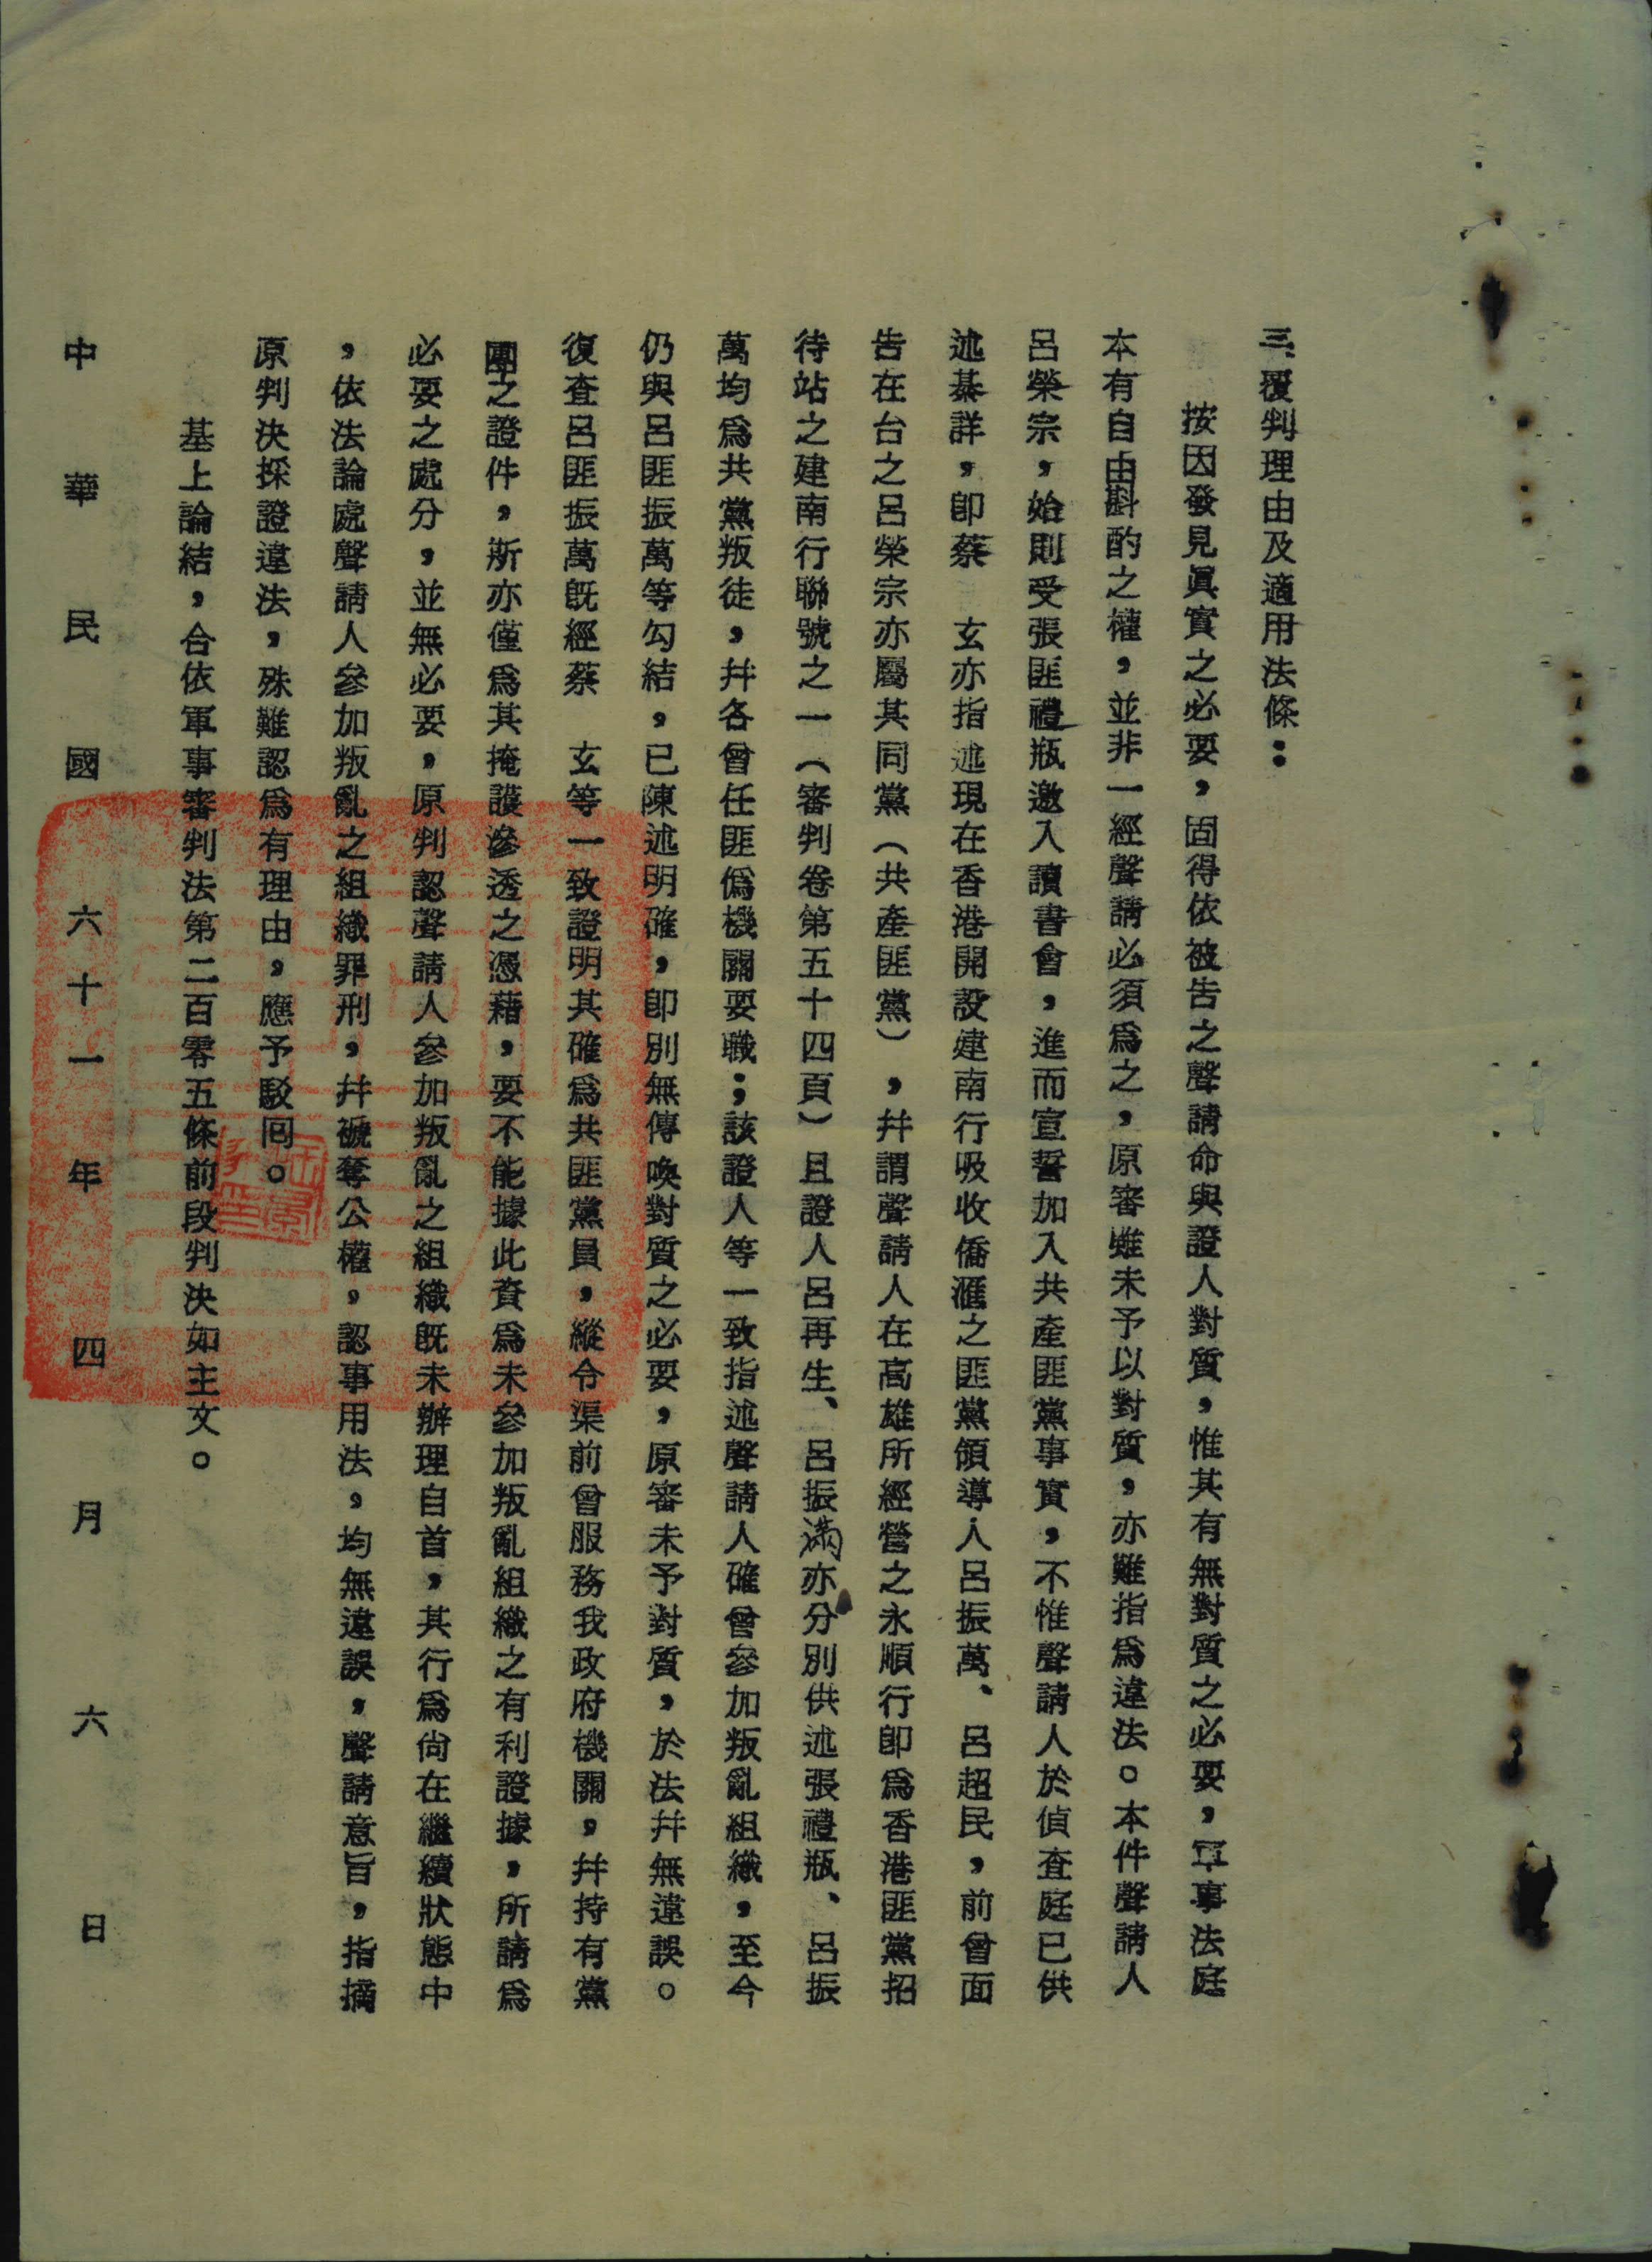 三、覆判理由及適用法條：
按因發見眞實之必要，固得依被告之聲請命與證人對質，惟其有無對質之必要，軍事法庭
本有自由斟酌之權，並非一經聲請必須爲之，原審雖未予以對質，亦難指爲違法。本件聲請人
呂榮宗，始則受張匪禮瓶邀入讀書會，進而宣誓加入共產匪黨事實，不惟聲請人於偵查庭已供
述綦詳，卽蔡　玄亦指述現在香港開設建南行吸收僑滙之匪黨領導人呂振萬、呂超民，前曾面
告在台之呂榮宗亦屬其同黨（共產匪黨），幷謂聲請人在高雄所經營之永順行卽爲香港匪黨招
待站之建南行聯號之一（審判卷第五十四頁）且證人呂再生、呂振滿亦分別供述張禮瓶、呂振
萬均爲共黨叛徒，幷各曾任匪僞機關要職；該證人等一致指述聲請人確曾參加叛亂組織，至今
仍與呂匪振萬等勾結，已陳述明確，卽別無傳喚對質之必要，原審未予對質，於法幷無違誤。
復查呂匪振萬旣經蔡　玄等一致證明其確爲共匪黨員，縱令渠前曾服務我政府機關，幷持有黨
團之證件，斯亦僅爲其掩護滲透之憑藉，要不能據此資爲未參加叛亂組織之有利證據，所請爲
必要之處分，並無必要，原判認聲請人參加叛亂之組織旣未辦理自首，其行爲尙在繼續狀態中
，依法論處聲請人參加叛亂之組織罪刑，幷褫奪公權，認事用法，均無違誤，聲請意旨，指摘
原判決採證違法，殊難認爲有理由，應予駁囘。
基上論結，合依軍事審判法第二百零五條前段判決如主文。
中華民國六十一年四月六日